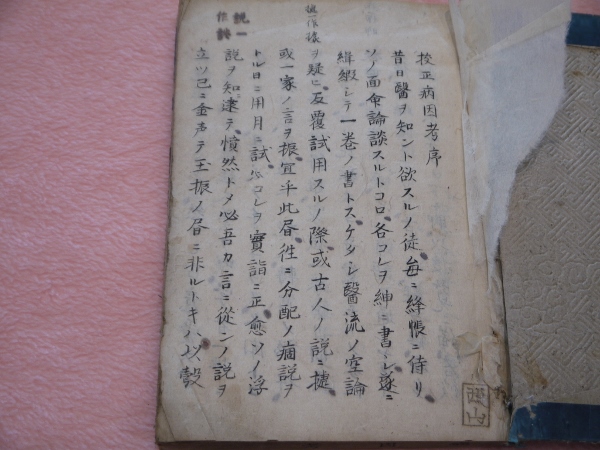 校正病因考序
昔日醫ヲ知ント欲スルノ徒毎ニ絳帳ニ侍リ
ソノ面命論談スルトコロ各コレヲ紳ニ書シ遂ニ
緝綴シテ一巻ノ書トス ケタシ醫流ノ空論
ヲ疑ヒ反覆試用スルノ際或古人ノ説ニ據
或一家ノ言ヲ振宜乎此屠徃ニ分配ノ痼説ヲ
トル日ニ用月ニ試必コレヲ實詣ニ正愈ソノ浮
説ヲ知逮テ憤然トメ必吾カ言ニ從ンノ説ヲ
立ツ己ニ金声テ玉振ノ屠ニ非ルトキハ以穀
據一作據
説一
作訣
西山